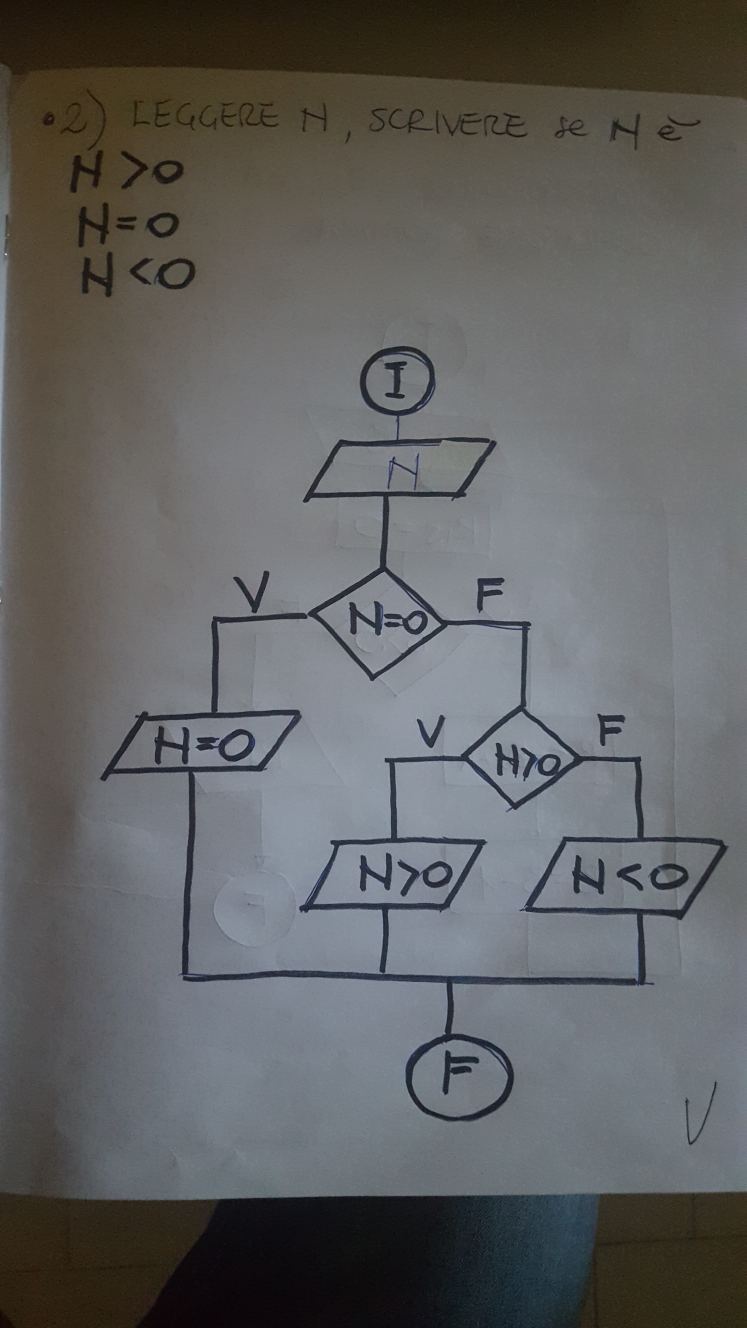 •2) LEGGERE N, SCRIVERE se N è
N >0
N=0
N <0
I
N
V
N=0
F
N=0
V
N>0
F
N>0
N<0
F
V